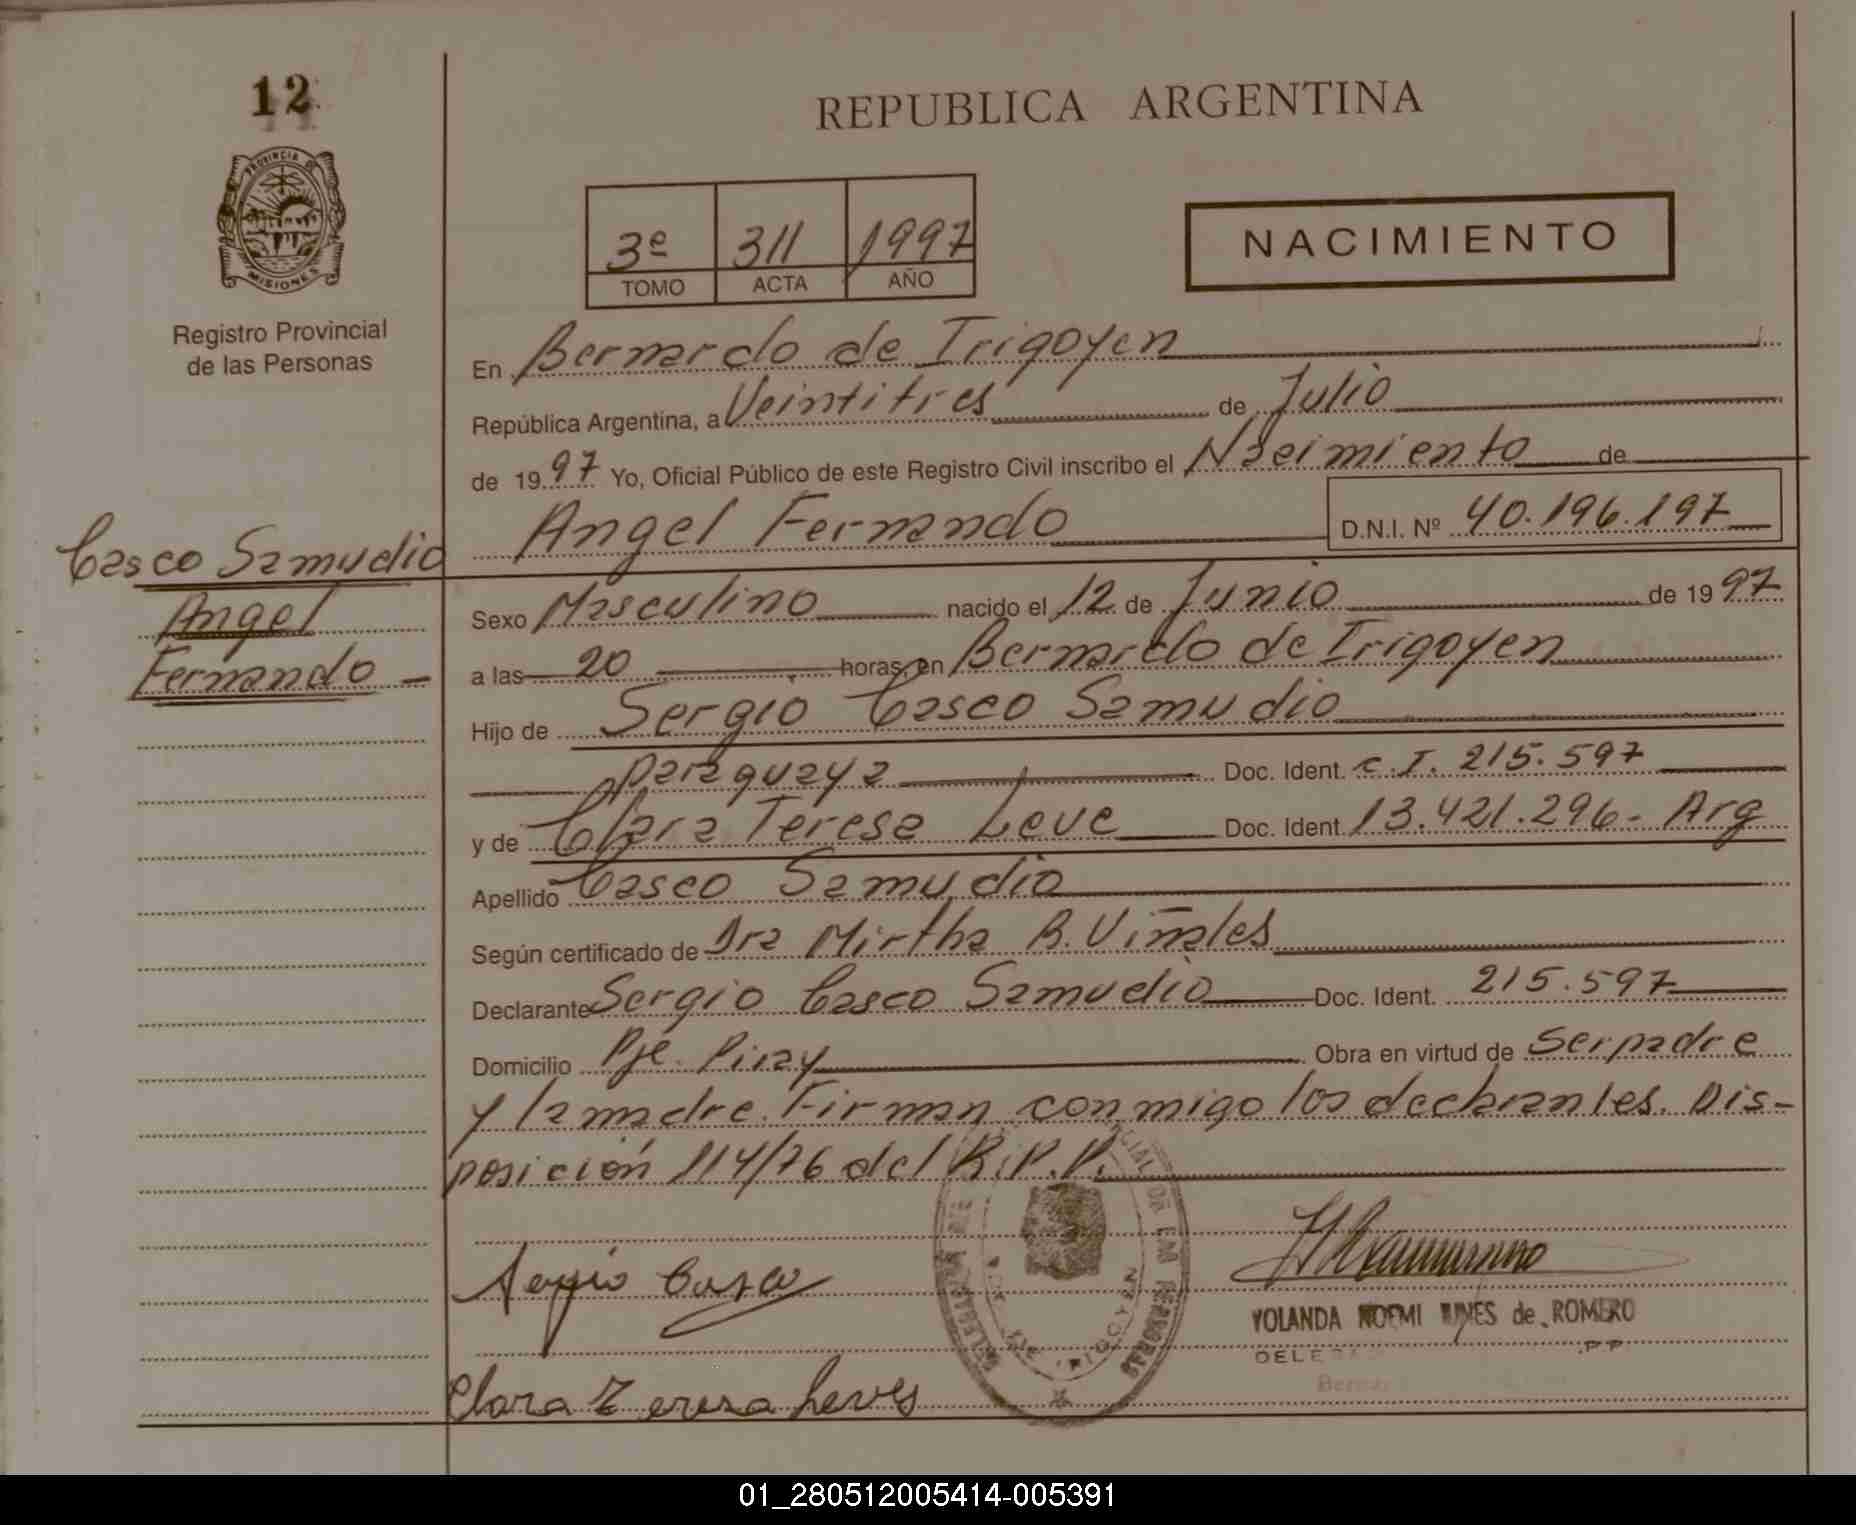 12
PROVINCIA
MISIONES
Registro Provincial
de las Personas
Casco Samudio
Angel
Fernando
REPUBLICA ARGENTINA
3º 311 1997
TOMO ACTA AÑO
NACIMIENTO
En Bernardo de Irigoyen
República Argentina, a Veintitres de Julio
de 1997 Yo, Oficial Público de este Registro Civil inscribo el Nacimiento de
Angel Fernando D.N.I. Nº 40.196.197
Sexo Masculino nacido el 12 de Junio de 1997
a las 20 horas, en Bernardo de Irigoyen
Hijo de Sergio Casco Samudio
paraguaya Doc. Ident. C.I. 215.597
y de Clara Teresa Leve Doc. Ident. 13.421.296- Arg
Apellido Casco Samudio
Según certificado de Dra Mirtha R. Viñales
Declarante Sergio Casco Samudio Doc. Ident. 215.597
Domicilio Pje. Piray Obra en virtud de Ser padre
y la madre. Firman conmigo los declarantes. Dis-
posición 114/76 del R.P.P.
Sergio Casco
YOLANDA NOEMI de ROMERO
Clara Teresa Leves
01_280512005414-005391